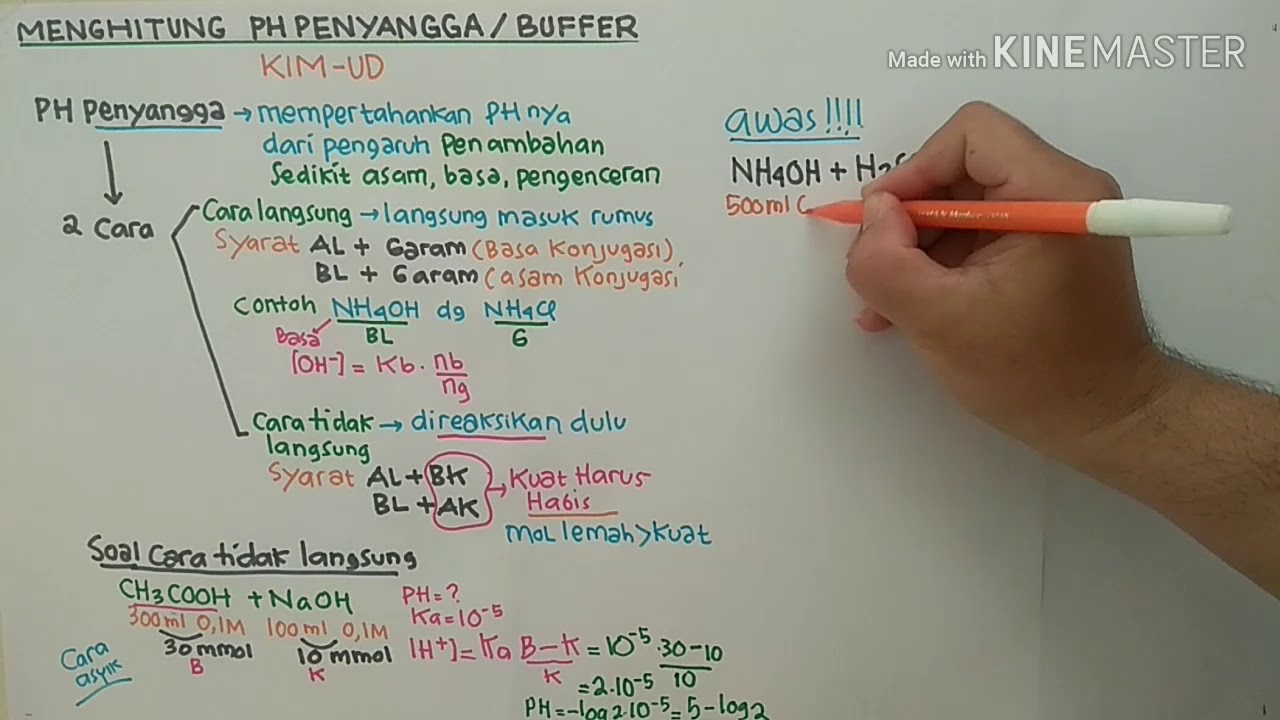 MENGHITUNG PH PENYANGGA/BUFFER
KIM-UD
PH Penyangga → mempertahankan PHnya
dari pengaruh Penambahan
Sedikit asam, basa, pengenceran
2 Cara
Cara langsung → langsung masuk rumus
Syarat AL + Garam (Basa Konjugasi)
BL + Garam (asam Konjugasi
Contoh NH4OH dg NH4Cl
Basa BL G
[OH-] = Kb · nb/ng
Cara tidak → direaksikan dulu
langsung
Syarat AL + BK → Kuat Harus
BL + AK Habis
Mol lemah > Kuat
Soal Cara tidak langsung
CH3COOH + NaOH PH = ?
300 ml 0,1M 100 ml 0,1M Ka = 10-5
30 mmol 10 mmol [H+] = Ka B-K/K = 10-5 · 30-10/10
B K
Cara
asyik
= 2.10-5
PH = -log 2.10-5 = 5 - log 2
Made with KINEMASTER
awas !!!!
NH4OH + H2
500 ml